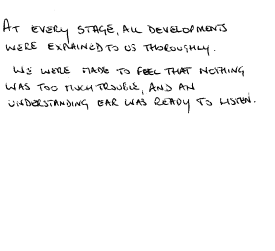 AT EVERY STAGE, ALL DEVELOPMENTS
WERE EXPLAINED TO US THOROUGHLY.
WE WERE MADE TO FEEL THAT NOTHING
WAS TOO MUCH TROUBLE, AND AN
UNDERSTANDING EAR WAS READY TO LISTEN.